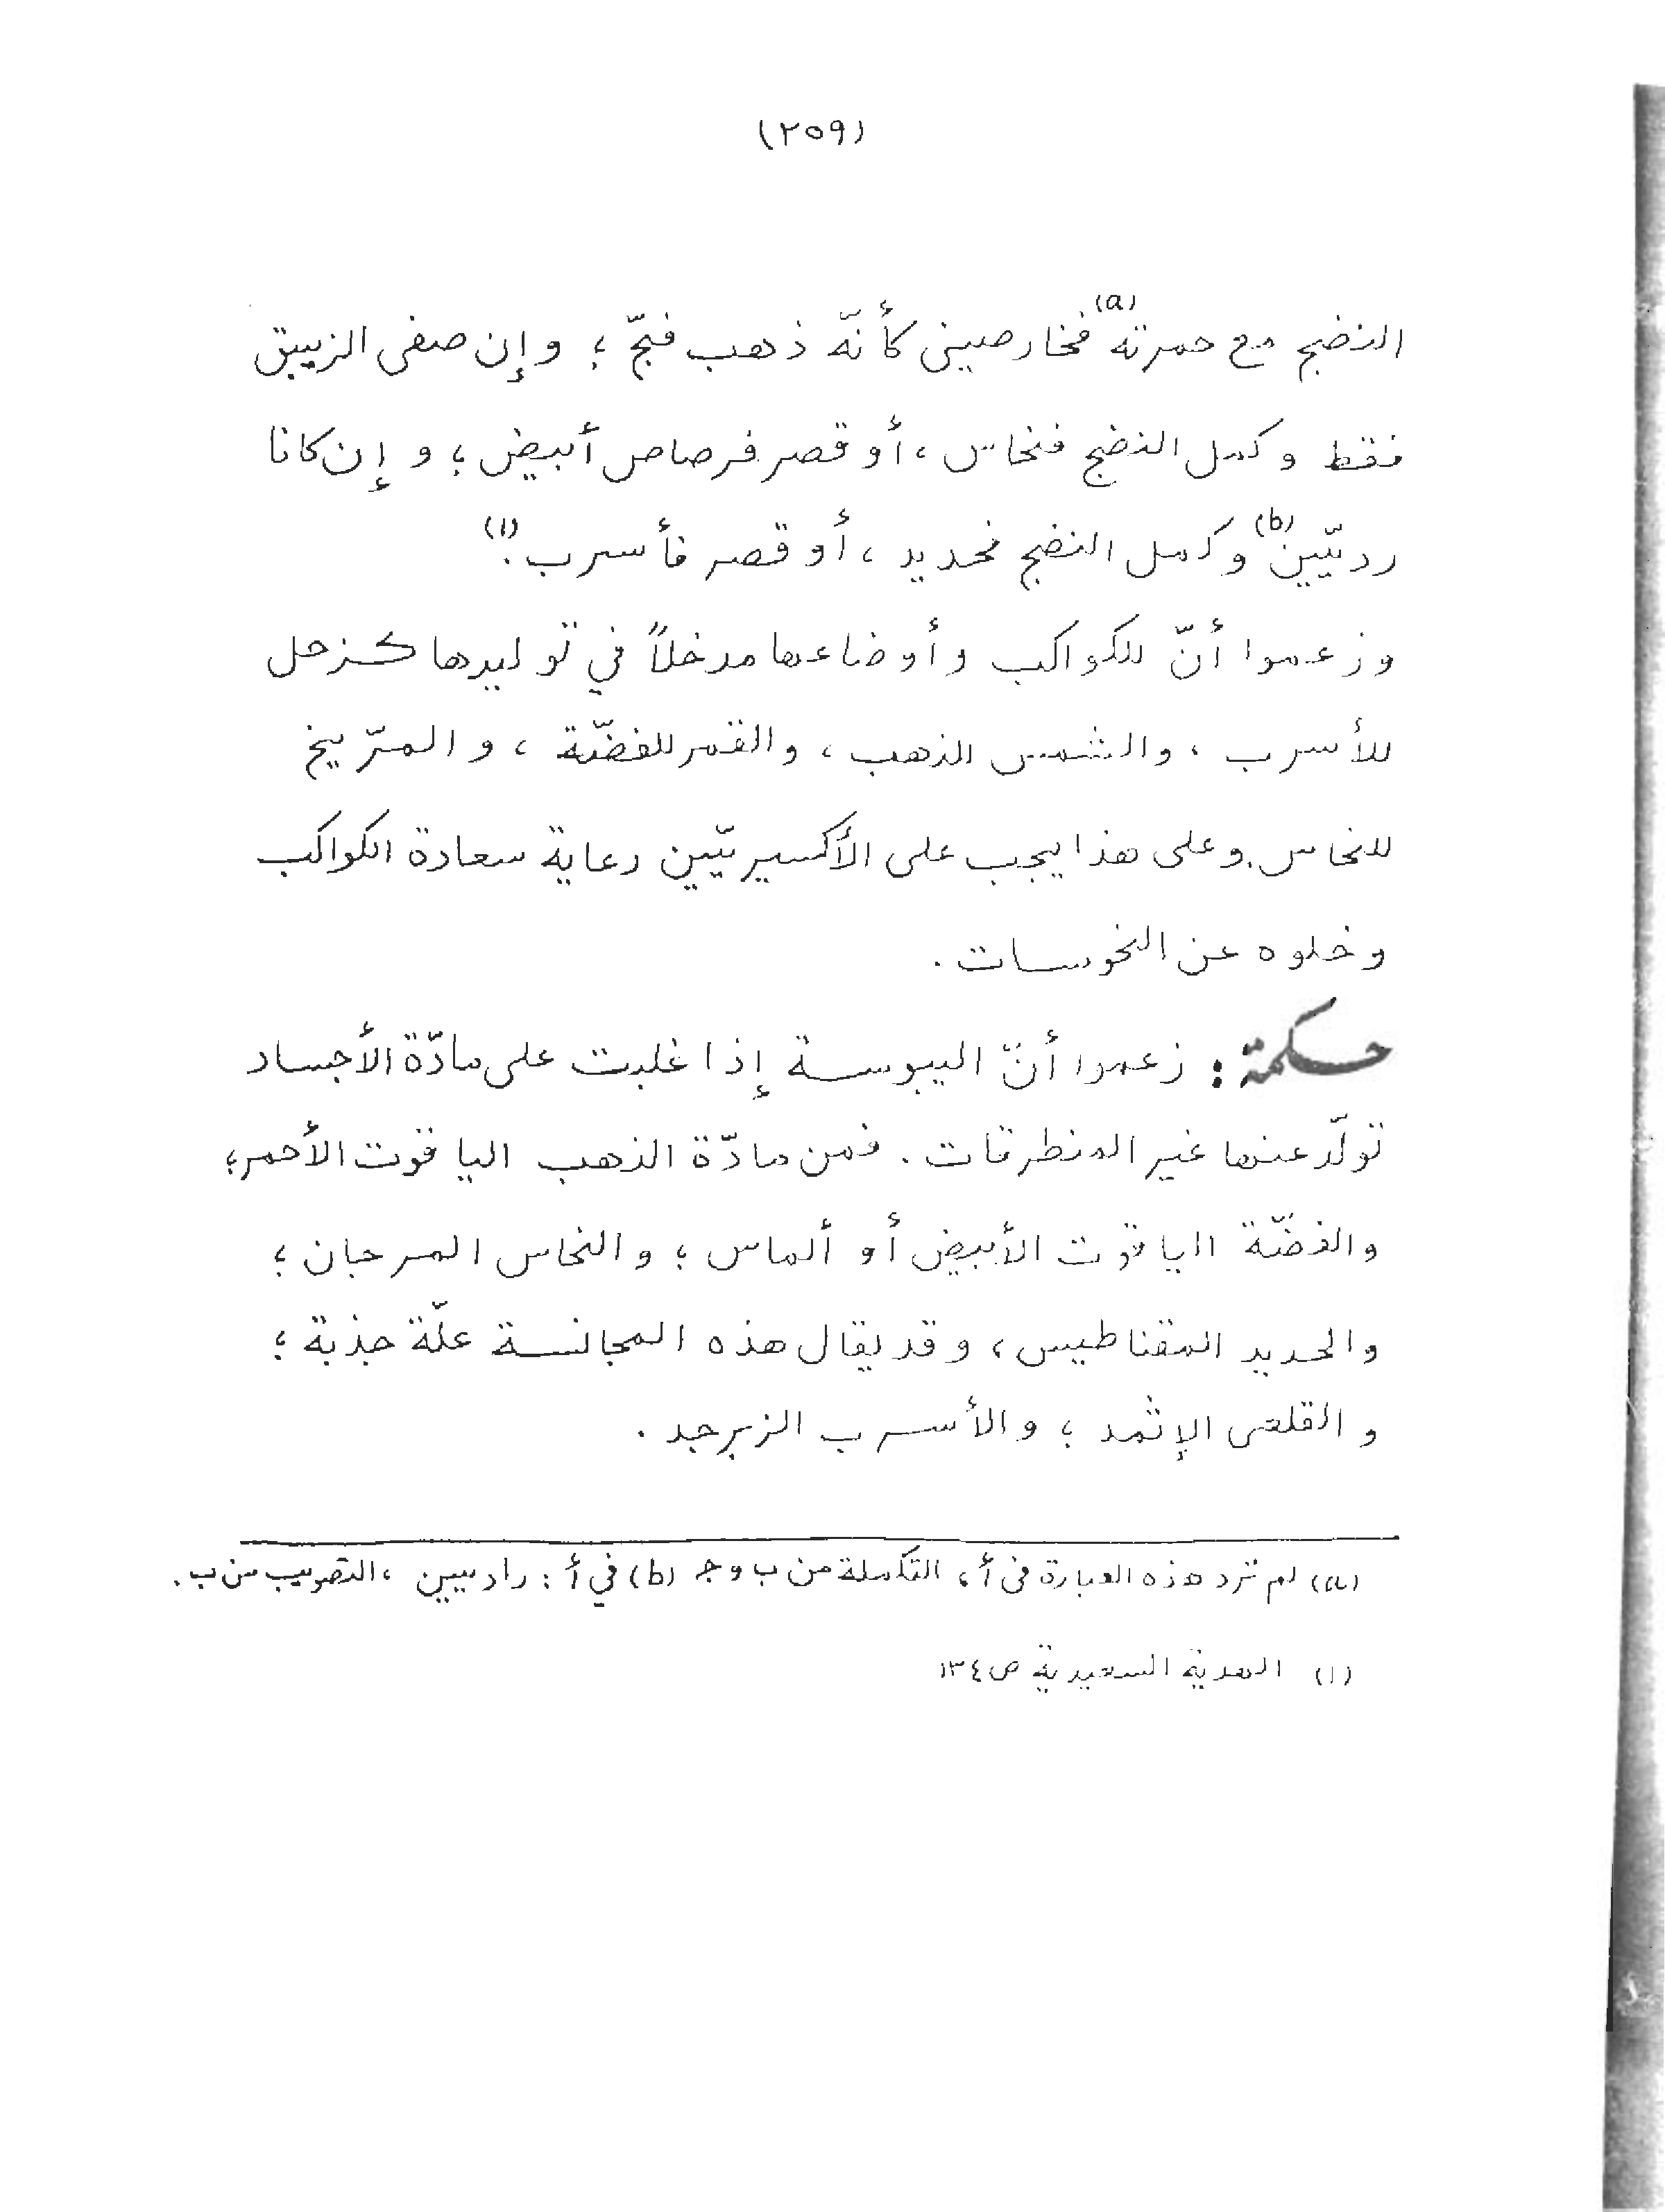 (٢٥٩)
النضج مع حمرته(a) فخارصيني كأنّه ذهب فجّ ؛ وإن صفى الزيبق
فقط وكمل النضج فنحاس ، أو قصر فرصاص أبيض ؛ و إن كانا
رديّيين(b) وكمل النضج فحديد ، أو قصر فأسرب .(١)
وزعموا أنّ للكواكب وأوضاعها مدخلاً في توليدها كزحل
للأسرب ، والشمس للذهب ، والقمر للفضّة ، والمرّيخ
للنحاس . وعلى هذا يجب على الأكسيريّين رعاية سعادة الكواكب
وخلوه عن النحوسات .
حكمة : زعموا أنّ اليبوسة إذا غلبت على مادّة الأجساد
تولّد عنها غير المنطرقات . فمن مادّة الذهب الياقوت الأحمر ؛
والفضّة الياقوت الأبيض أو ألماس ؛ والنحاس المرجان ؛
والحديد المقناطيس ، وقد يقال هذه المجانسة علّة جذبة ؛
والقلعى الإثمد ؛ والأسرب الزبرجد .
(a) لم ترد هذه العبارة في أ ، التكملة من ب وجـ (b) في أ : رادسيين ، التصويب من ب .
(١) الهدية السعيدية ص ١٣٤